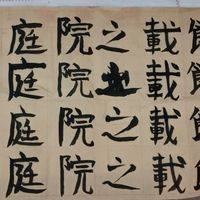 庭院之載
庭院之載
庭院之載
庭院之載